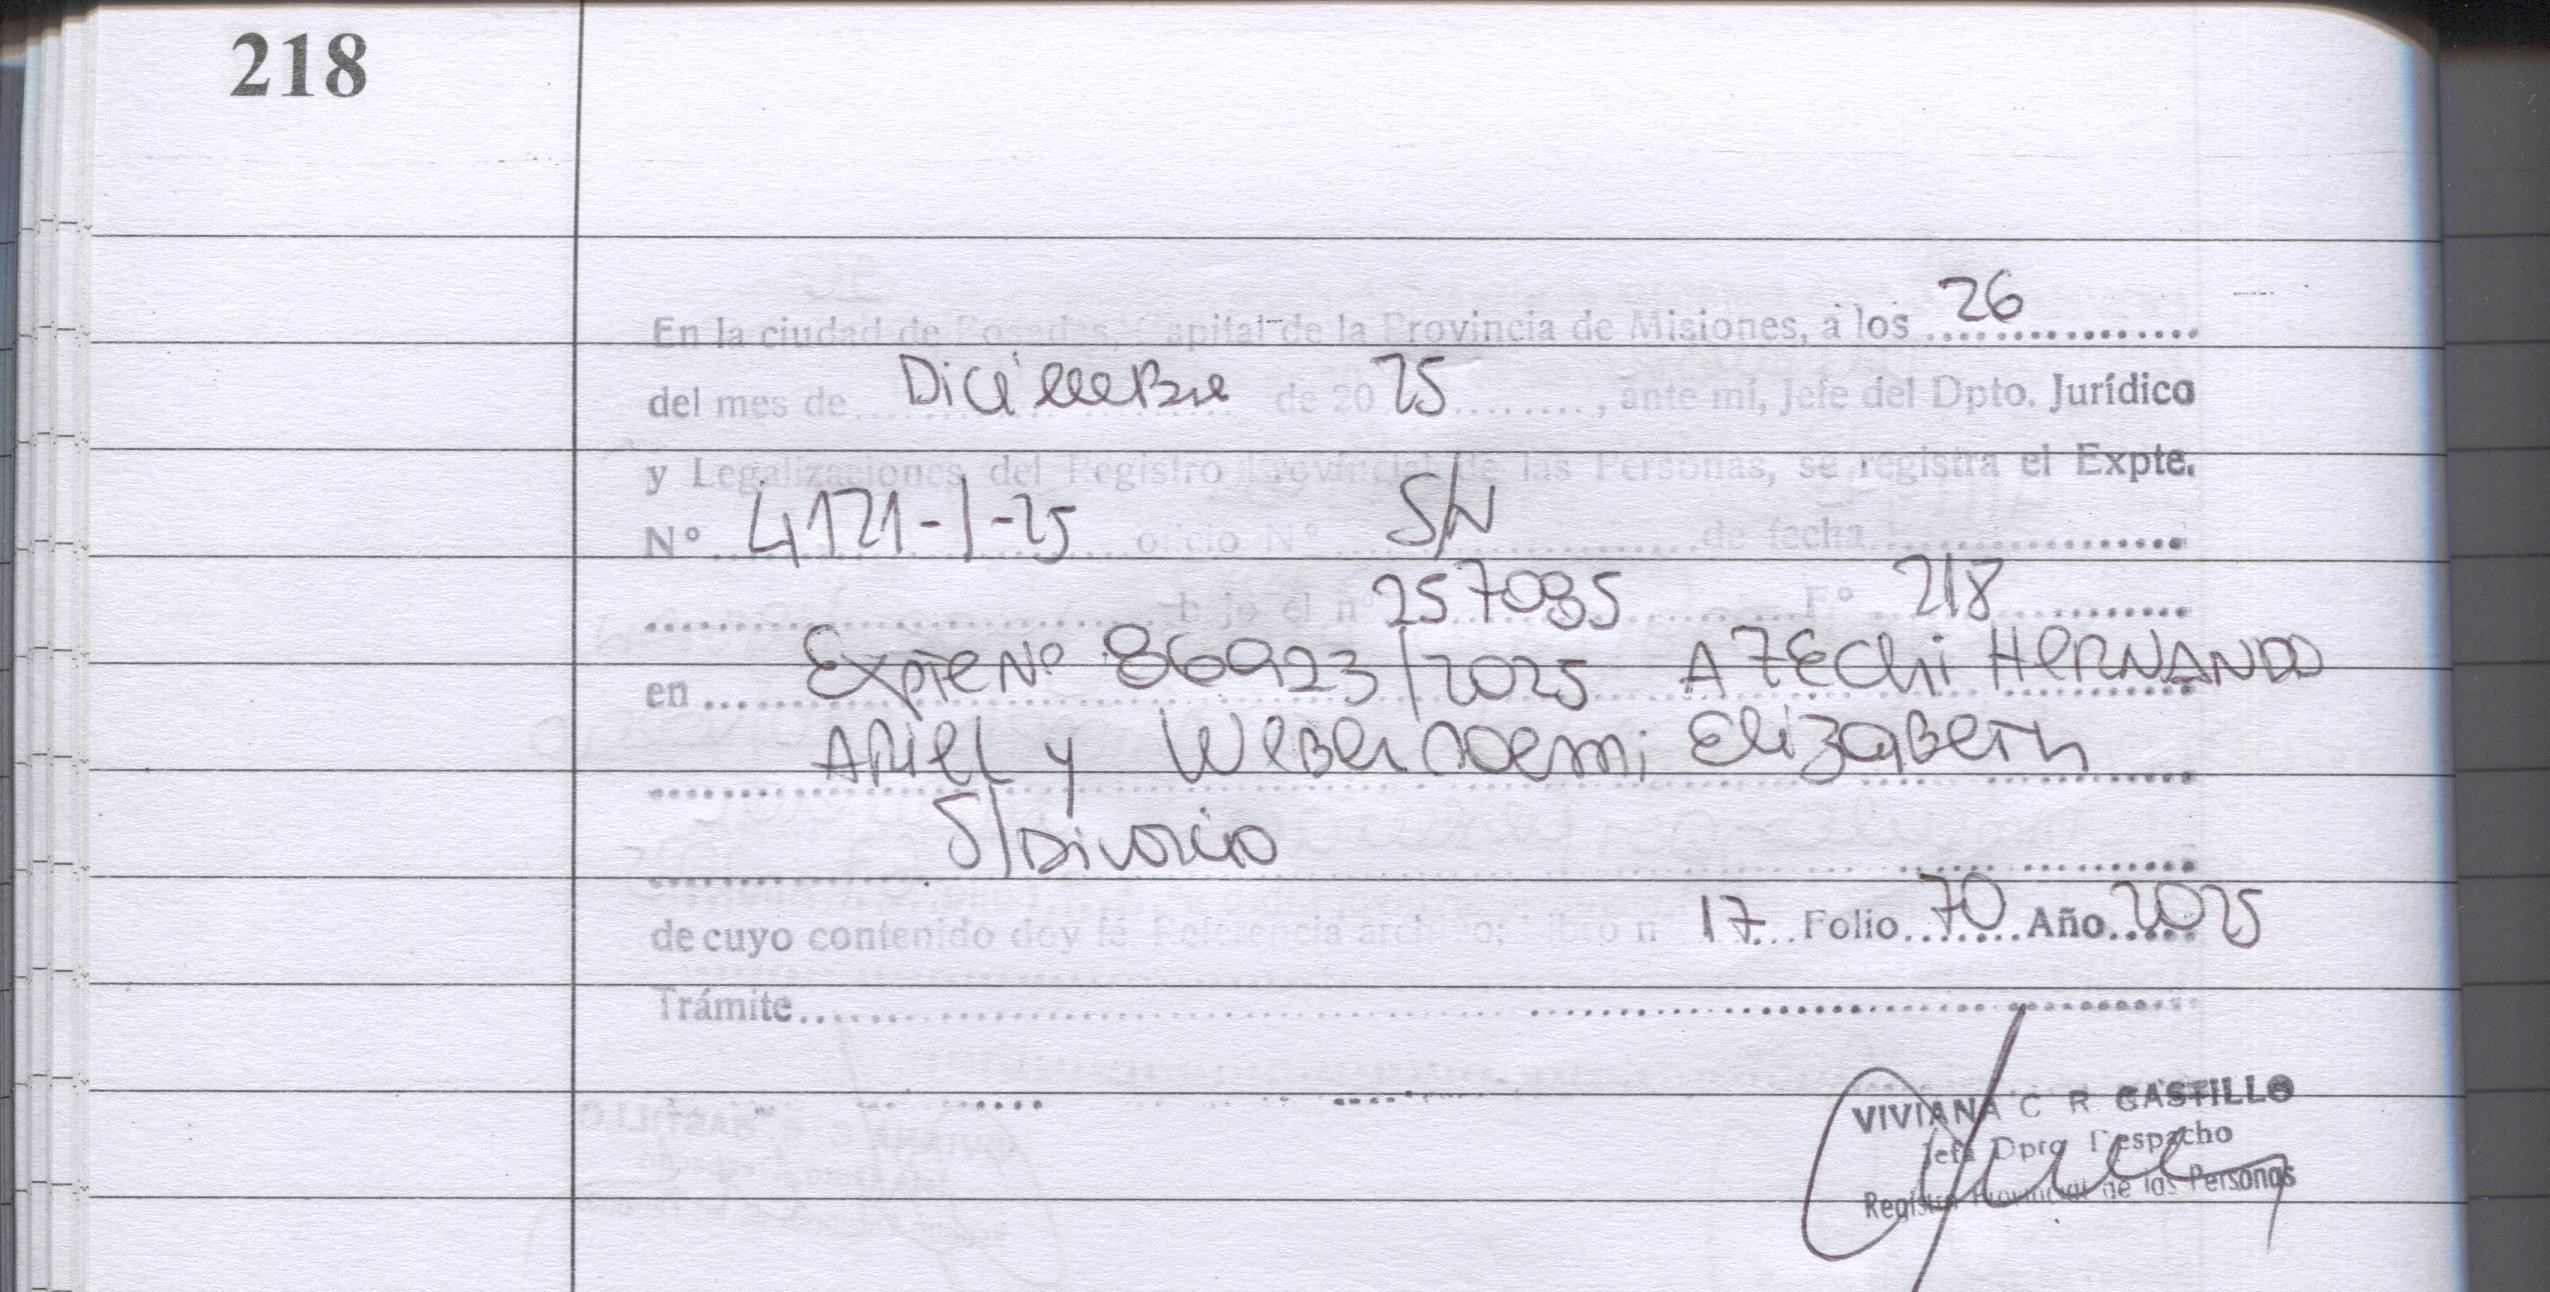 218
En la ciudad de Posadas, Capital de la Provincia de Misiones, a los 26
del mes de Diciembre de 20 25, ante mí, Jefe del Dpto. Jurídico
y Legalizaciones del Registro Provincial de las Personas, se registra el Expte.
Nº 4121-1-25 oficio Nº S/N de fecha
bajo el nº 257085 Fº 218
en Expte Nº 86923/2025 AZECHI HERNANDO
Ariel y Weber Noemi Elizabeth
S/Divorcio
de cuyo contenido doy fé Referencia archivo; Libro nº 17 Folio 70 Año 2025
Trámite
VIVIANA C R CASTILLO
Jefa Dpto Despacho
Registro Provincial de las Personas